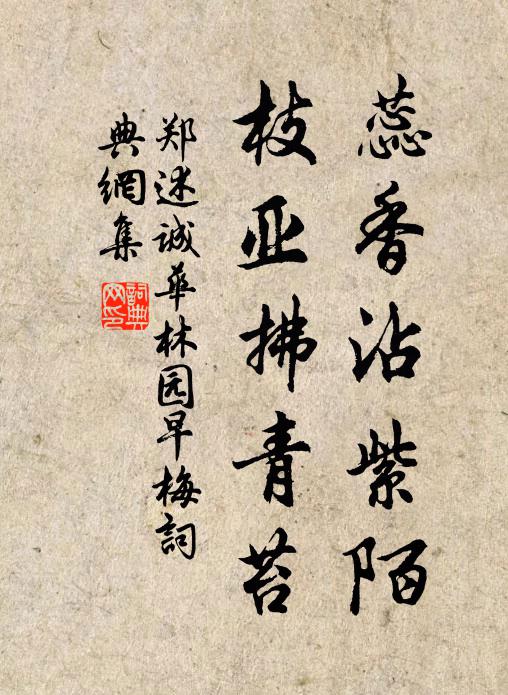 蕊香沾紫陌
枝亚拂青苔
郑述诚华林园早梅词
典網集
詞典
网印